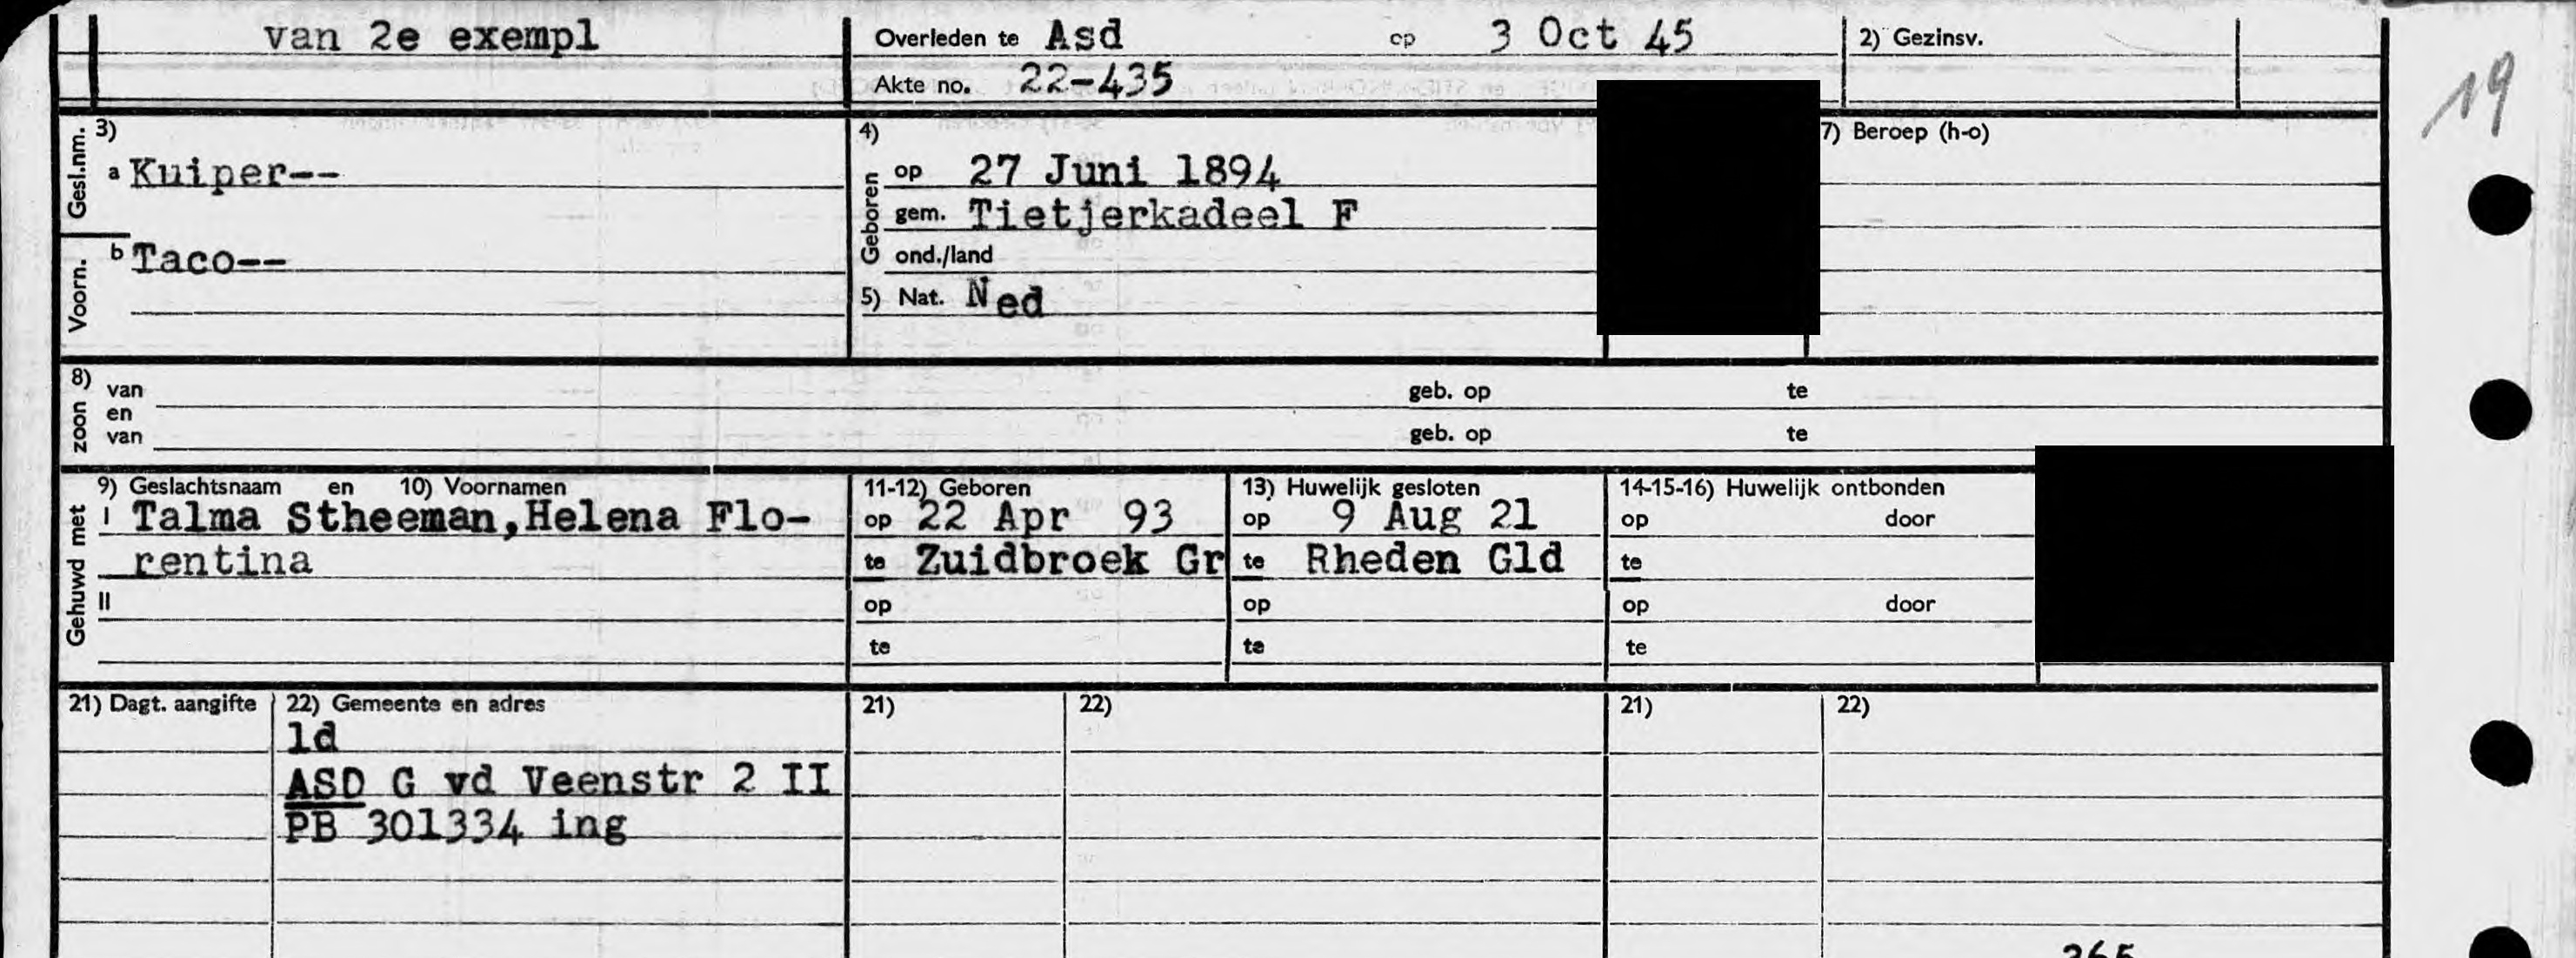 van 2e exempl
Overleden te Asd op 3 Oct 45
2) Gezinsv.
Akte no. 22-435
19
Gesl.nm.
3)
a Kuiper--
Voorn.
b Taco--
4)
Geboren
op 27 Juni 1894
gem. Tietjerkadeel F
ond./land
5) Nat. Ned
7) Beroep (h-o)
zoon 8)
van geb. op te
en
van geb. op te
Gehuwd met
9) Geslachtsnaam en 10) Voornamen
I Talma Stheeman,Helena Flo-
rentina
II
11-12) Geboren
op 22 Apr 93
te Zuidbroek Gr
op
te
13) Huwelijk gesloten
op 9 Aug 21
te Rheden Gld
op
te
14-15-16) Huwelijk ontbonden
op door
te
op door
te
21) Dagt. aangifte 22) Gemeente en adres 21) 22) 21) 22)
ld
ASD G vd Veenstr 2 II
PB 301334 ing